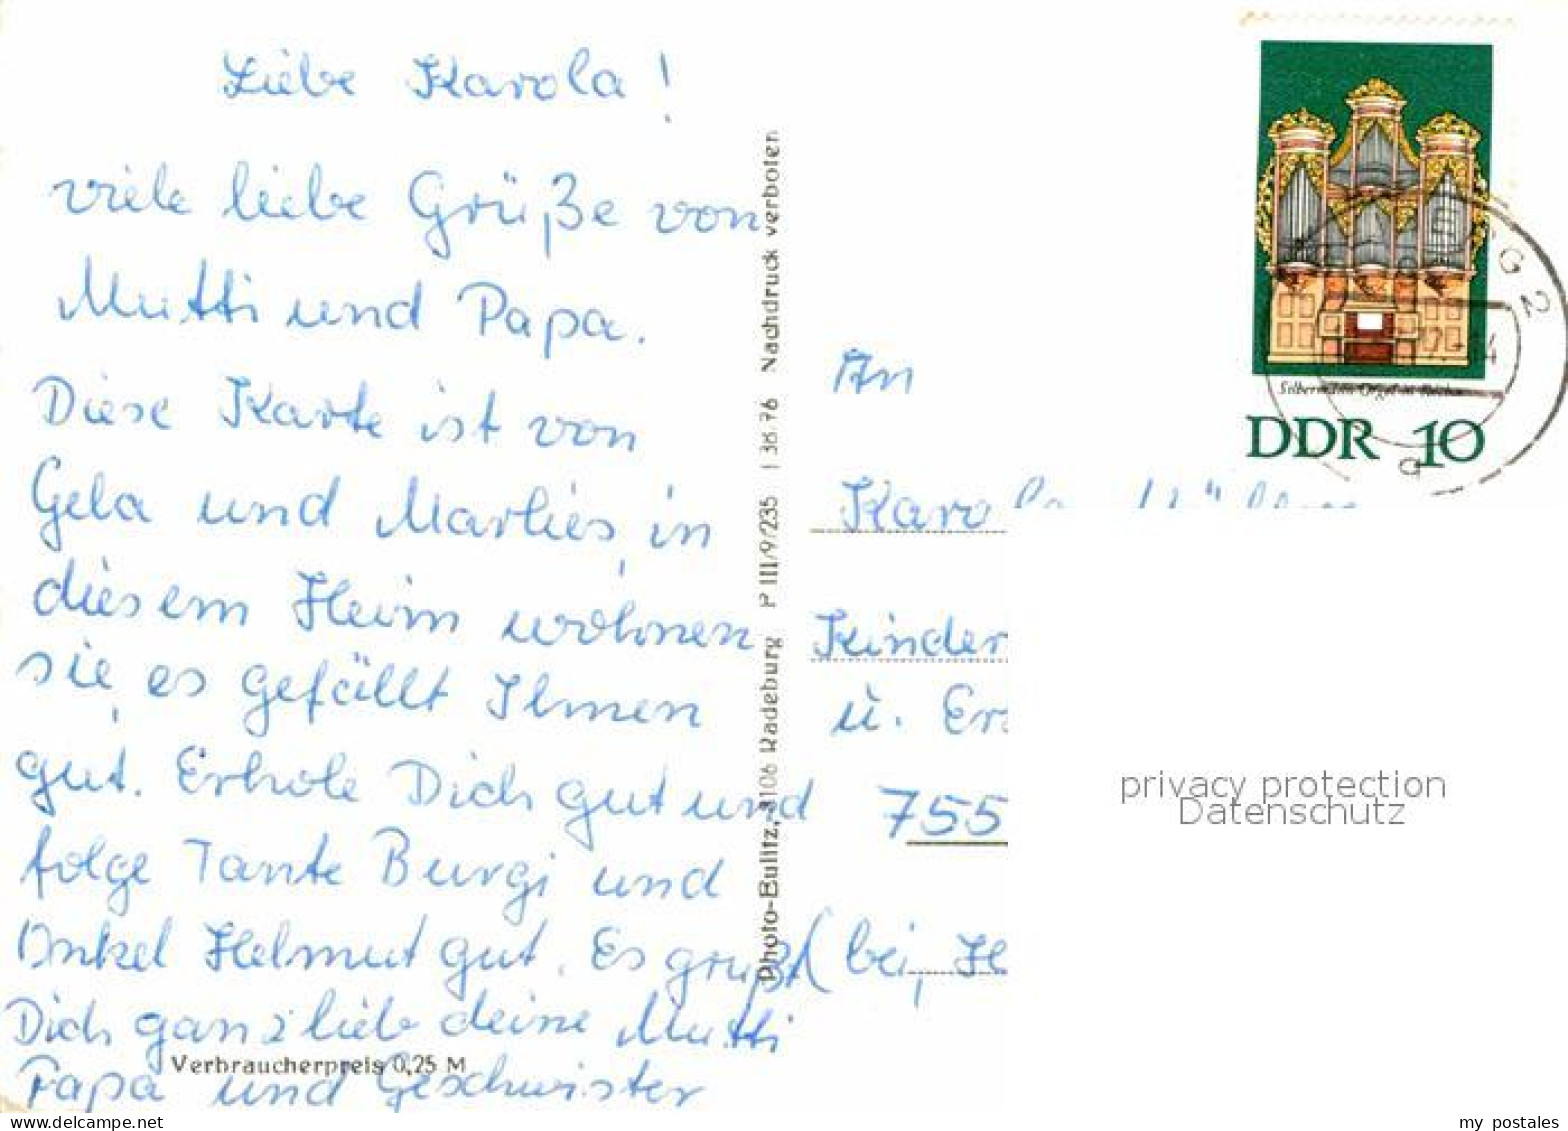 Liebe Karola!
viele liebe Grüße von
Mutti und Papa.
Diese Karte ist von
Gela und Marlies, in
diesem Heim wohnen
sie, es gefällt Ihnen
gut. Erhole Dich gut und
folge Tante Burgi und
Onkel Helmut gut. Es grüßt
Dich ganz lieb deine Mutti
Papa und Geschwister
Verbraucherpreis 0,25 M
Photo-Bulitz, 8106 Radeburg P III/9/235 1 38 76 Nachdruck verboten
DDR 10
An
Karola
Kinder
u. Er
755
(bei, He
privacy protection
Datenschutz
www.delcampe.net
my_postales